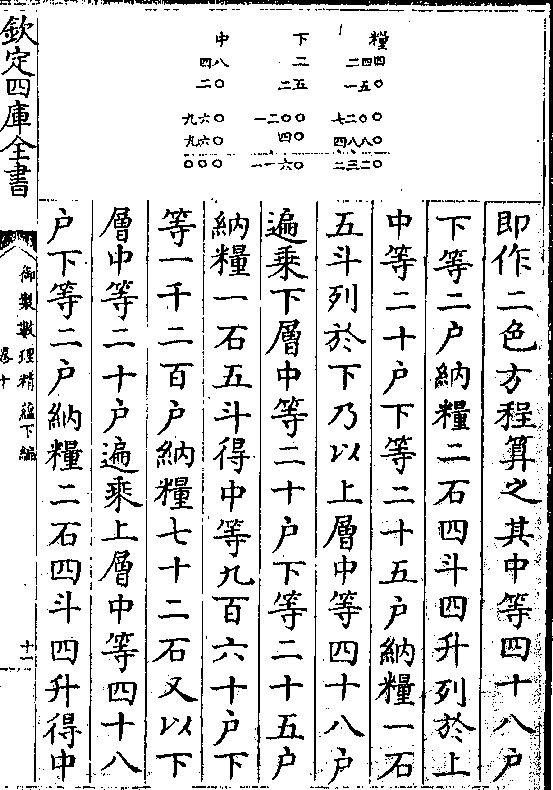 中 下 糧
四八 二 二四四
二〇 二五 一五〇
九六〇 一二〇〇 七二〇〇
九六〇 四〇 四八八〇
〇〇〇 一一六〇 二三二〇
即作二色方程算之其中等四十八户
下等二户納糧二石四斗四升列於上
中等二十户下等二十五户納糧一石
五斗列於下乃以上層中等四十八户
遍乘下層中等二十户下等二十五户
納糧一石五斗得中等九百六十户下
等一千二百户納糧七十二石又以下
層中等二十户遍乘上層中等四十八
户下等二户納糧二石四斗四升得中
欽定四庫全書
御製數理精蘊下編
卷十
十一